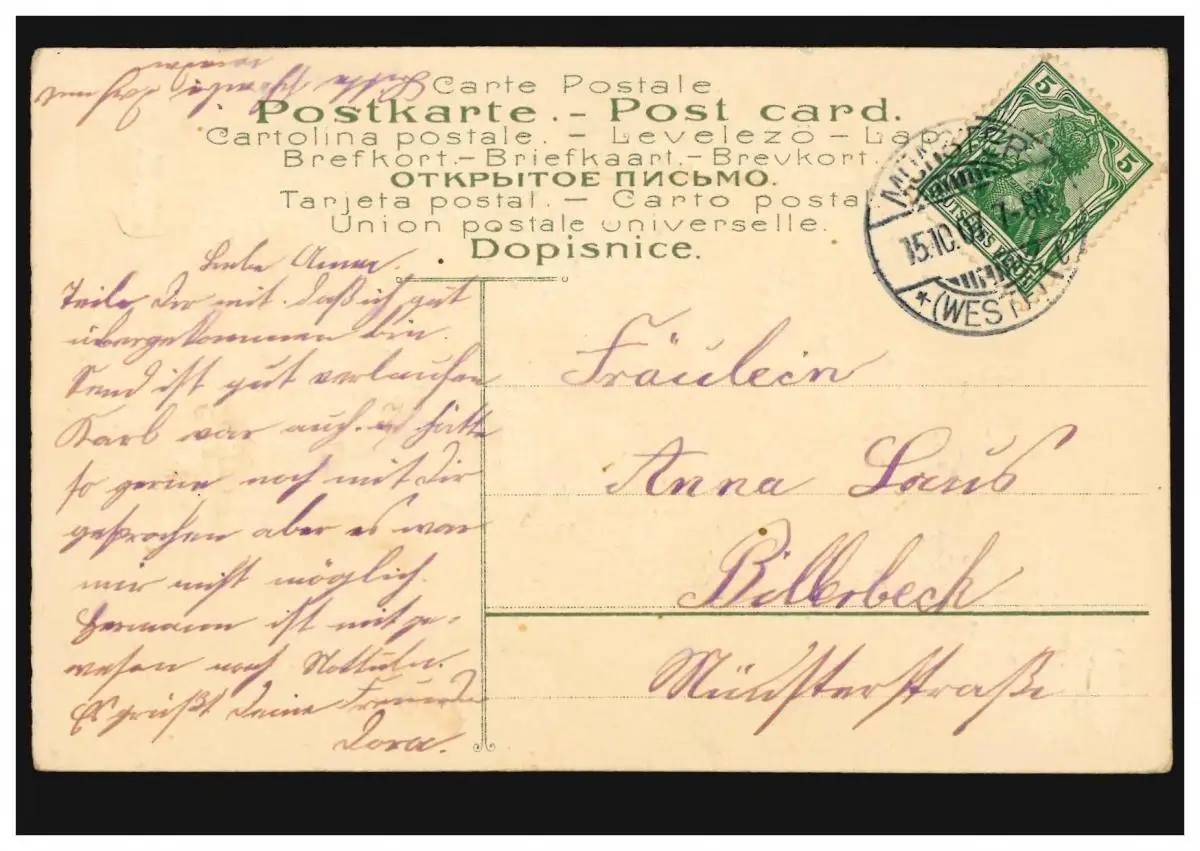 Carte Postale
Postkarte. - Post card.
Cartolina postale. - Levelező - Lap
Brefkort. - Briefkaart. - Brevkort.
ОТКРЫТОЕ ПИСЬМО.
Tarjeta postal. - Carto postal
Union postale universelle.
Dopisnice.
5
5
DEUTSCHES REICH
MÜNSTER
15.10.
7-8N
* (WESTF.)
Liebe Anna.
Teile Dir mit. daß ich gut
übergekommen bin.
ist gut verlaufen
Karl war auch. hätte
so gerne noch mit Dir
gesprochen aber es war
mir nicht möglich.
Hermann ist mitge-
wesen nach Nottuln.
Es grüßt Deine Freundin
Dora.
Fräulein
Anna Laus
Billerbeck
Münsterstraße